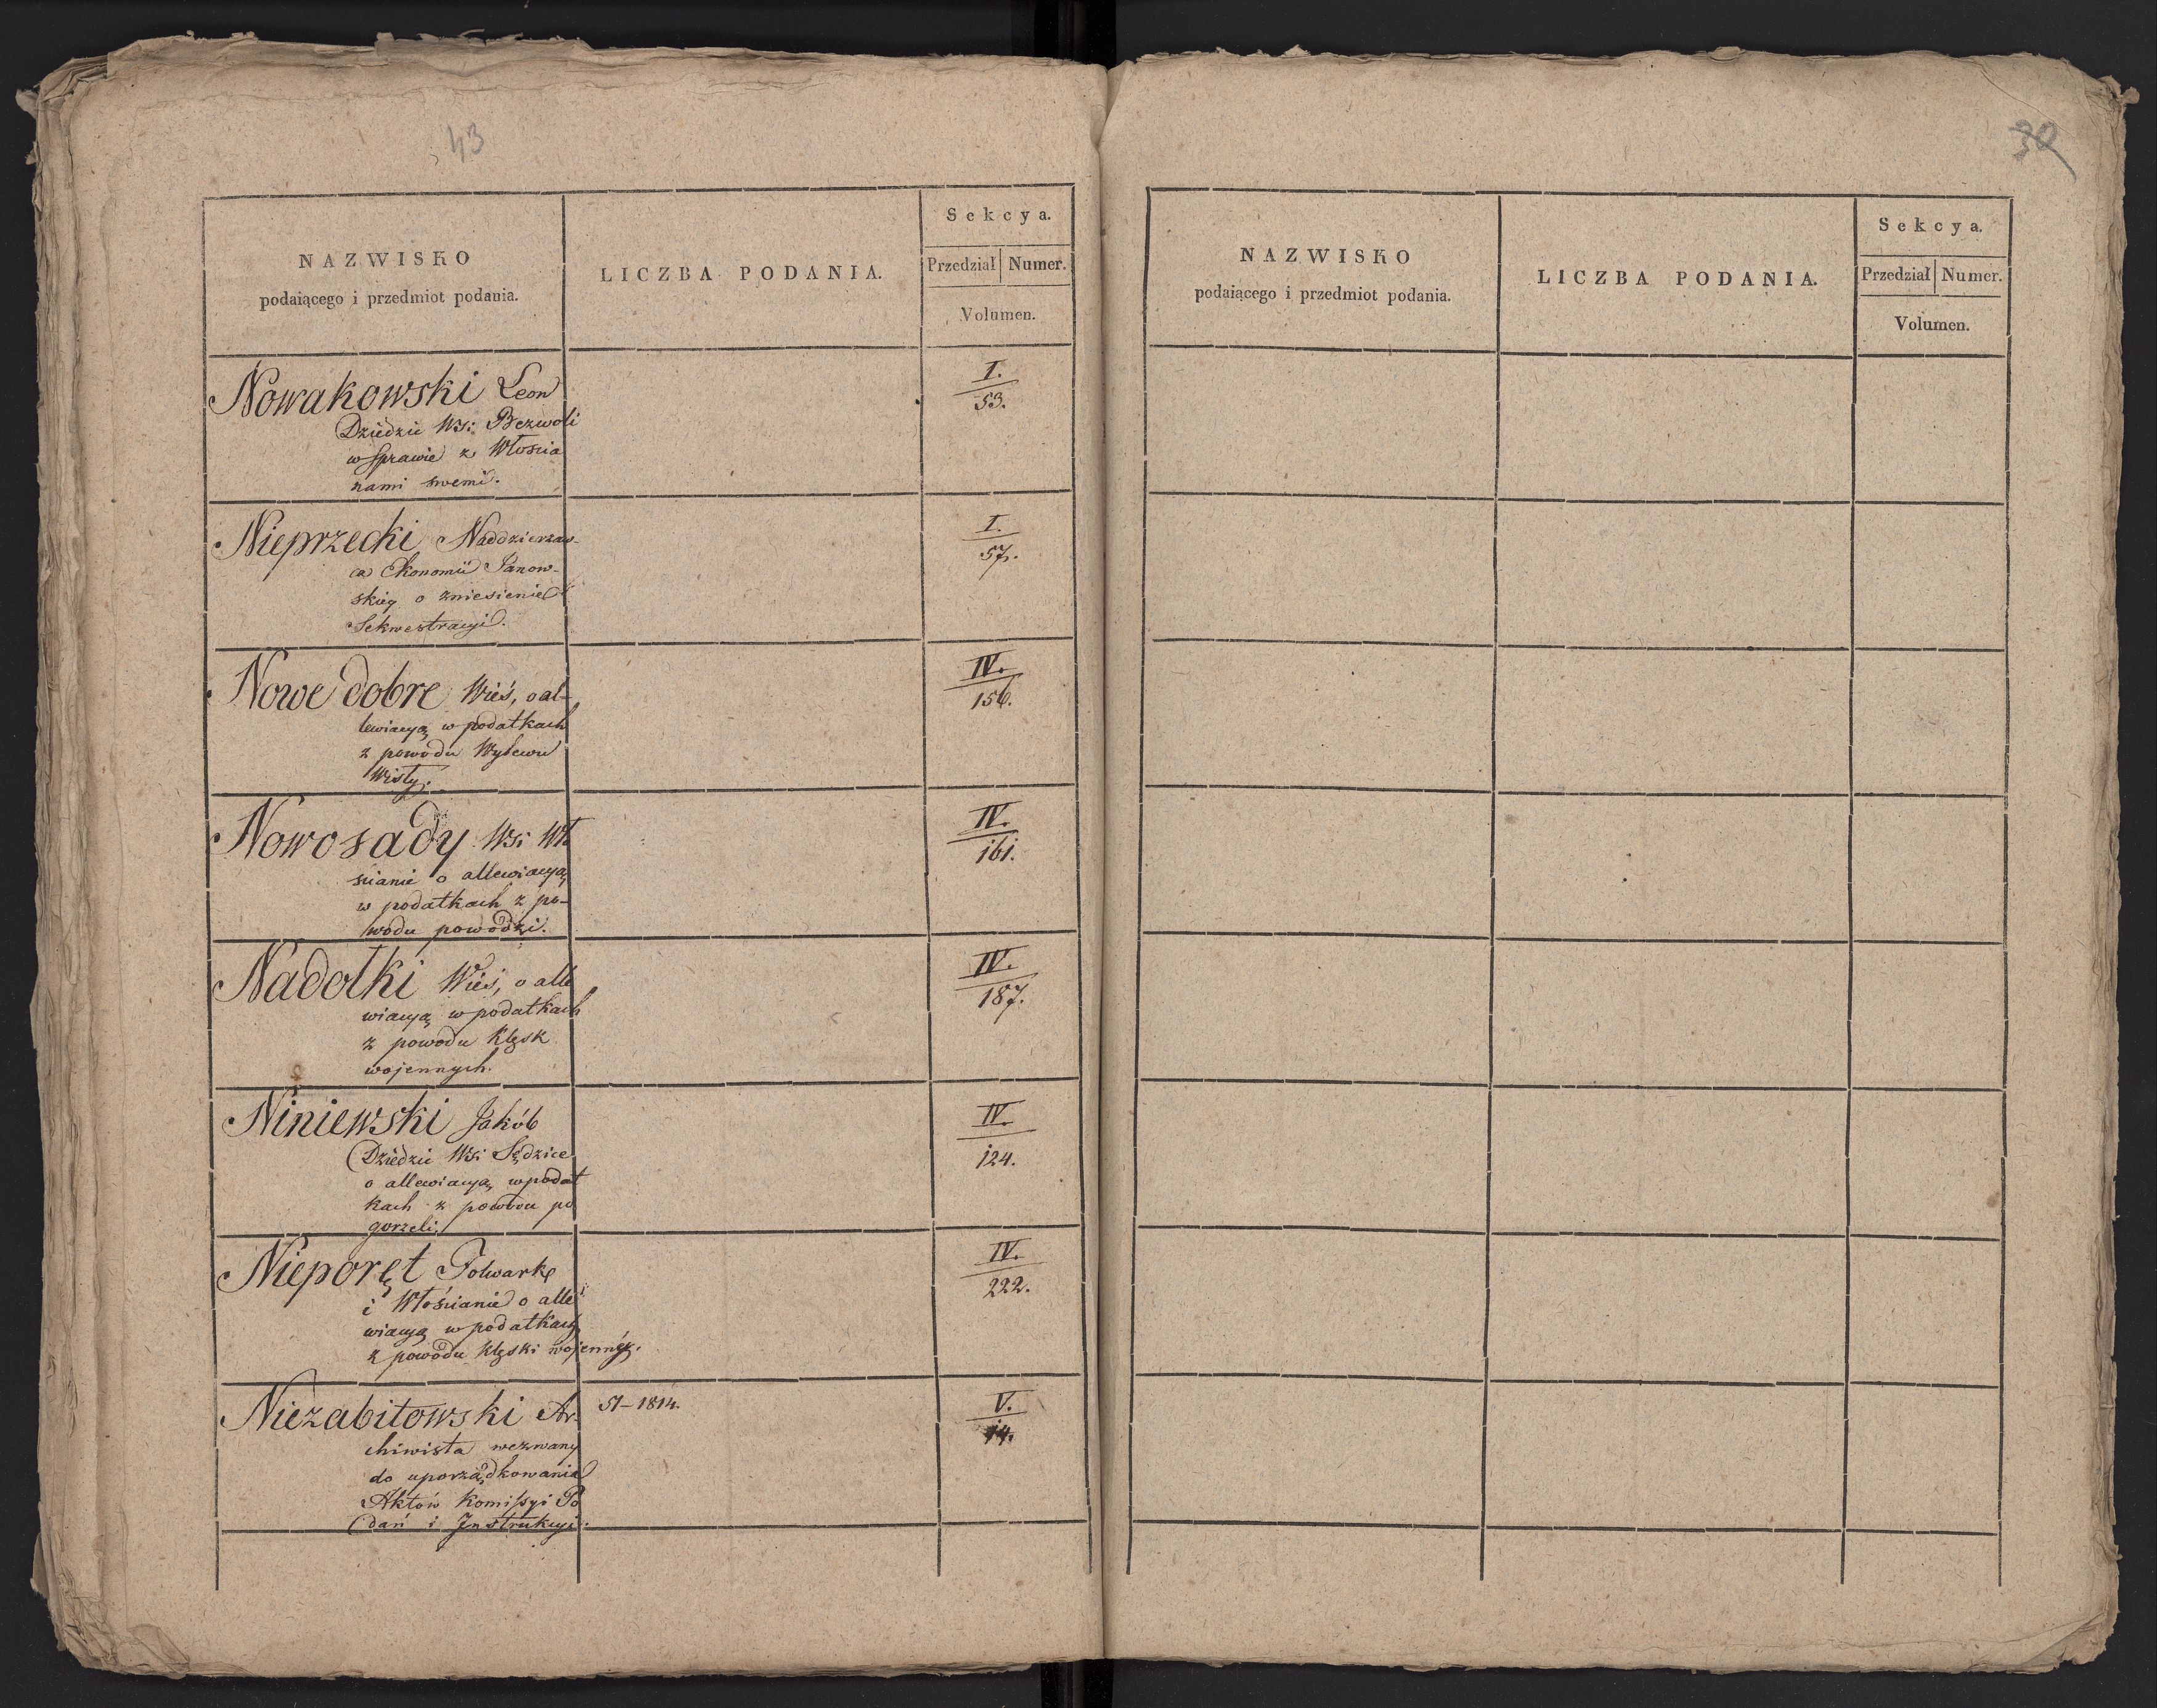 43
NAZWISKO
podaiącego i przedmiot podania.
LICZBA PODANIA.
Sekcya.
Przedział Numer.
Volumen.
Nowakowski Leon
Dziedzic Wsi Bezwoli
w Sprawie z Włościa
nami swemi.
I.
53.
Nieprzecki Naddzierzaw-
ca Ekonomii Janow-
skiey o zniesienie
Sekwestracyi.
I.
57.
Nowe dobre Wieś, o al-
lewiacyą w podatkach
z powodu Wylewu
Wisły.
IV.
156.
Nowosady Wsi Wło
scianie o allewiacyą
w podatkach z po-
wodu powodzi.
IV.
161.
Nadolki Wieś, o alle
wiacyą w podatkach
z powodu Klęsk
wojennych.
IV.
187.
Niniewski Jakób
Dziedzic Wsi Sędzice
o allewiacyą w podat
kach z powodu po
gorzeli.
IV.
124.
Nieporęt Folwark
i Włościanie o alle
wiacyą w podatkach
z powodu klęski wojennéy.
IV.
222.
Niezabitowski Ar-
chiwista wezwany
do uporządkowania
Aktów Komissyi Po
dań i Instrukcyi.
51-1814.
V.
14.
30
NAZWISKO
podaiącego i przedmiot podania.
LICZBA PODANIA.
Sekcya.
Przedział Numer.
Volumen.